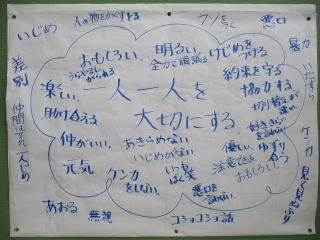 いじめ
人の物をかくすとる
ウソをつく
悪口
暴力
いたずら
ケンカ
見て見ぬふり
差別
仲間はずれ
一人じめ
あおる
無視
コショコショ話
おもしろい
明るい
全力で頑張る
けじめをつける
うらやましがられる
約束を守る
楽しい
協力する
一人一人を
大切にする
切り替えが速い
助け合える
あきらめない
好ききらいを言わない
仲がいい
いじめがない
優しい
ゆずり合う
元気
ケンカをしない
いつもばく笑
注意できる
おもしろい
悪口を言わない